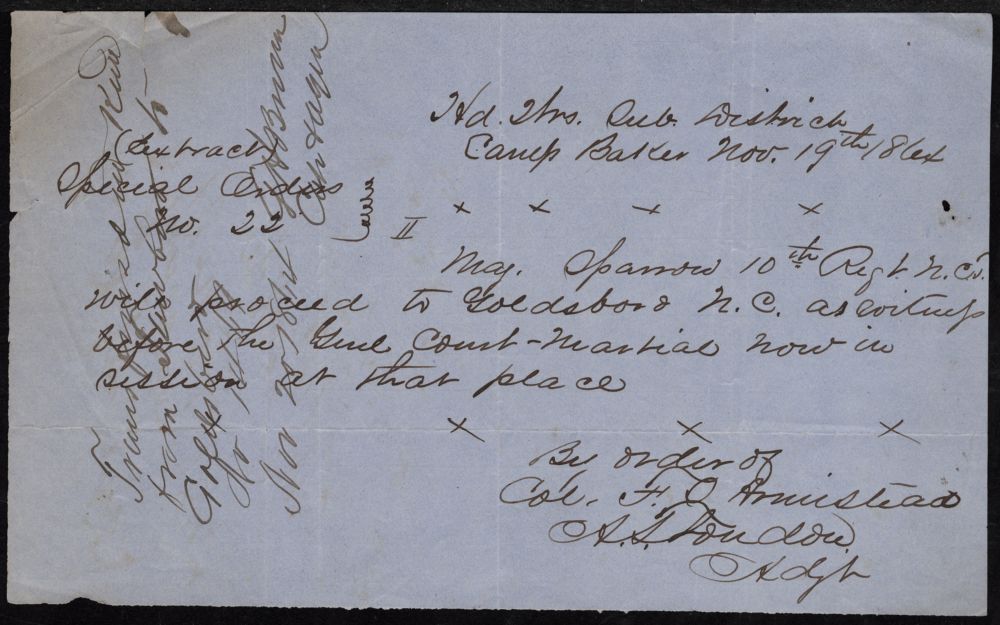 Hd. Qrs. Sub. District
Camp Baker Nov. 19th 1864
(Extract)
Special Orders
No. 22
x x x x
II
Maj. Sparrow 10th Regt N.C.
will proceed to Goldsboro N.C. as witness
before the Genl Court-Martial now in
session at that place
x x x
By order of
Col. F. J. Armistead
A. S. London
Adjt
Transportation
from to
Goldsboro
Nov 20 1864
Capt